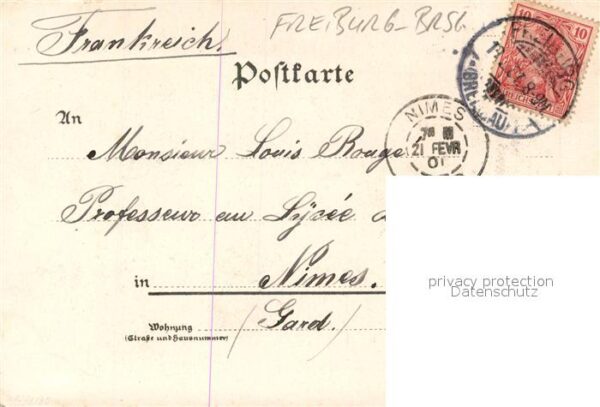 Frankreich.
FREIBURG-BRSG
10
10
Postkarte
An
NIMES
21 FEVR
01
Monsieur Louis Rouge
Professeur au Lycée
in Nimes.
(Gard.)
Wohnung
(Straße und Hausnummer)
privacy protection
Datenschutz